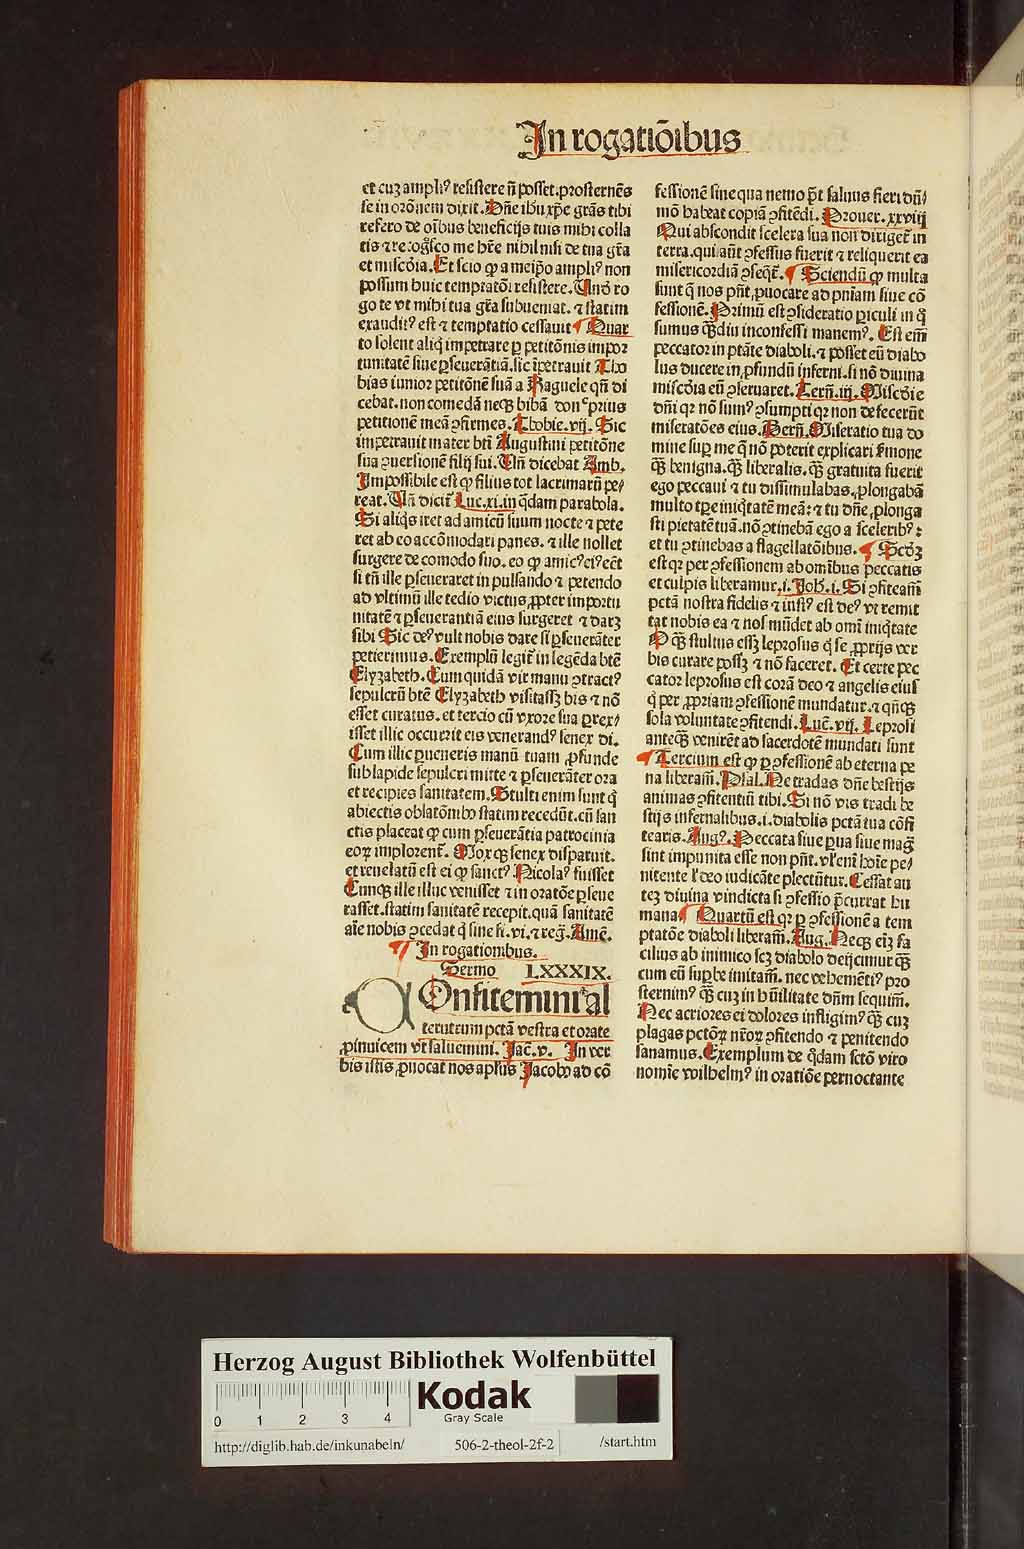 In rogatiōibus
et cuȝ ampliꝰ resistere ñ posset. prosternēs
se in orōnem dixit. Dñe ihu xp̄e grās tibi
refero de oībus beneficijs tuis mihi colla
tis ⁊ recogſco me hr̄e nihil nisi de tua gr̄a
et miscōia. Et scio ꝙ a meip̄o ampliꝰ non
possum huic temptatōi resistere. Unō ro
go te vt mihi tua gr̄a subueniat. ⁊ statim
exauditꝰ est ⁊ temptatio cessauit ¶ Quar
to solent aliq̄ impetrare ꝑ petitōnis impor
tunitatē siue ꝑseuerātiā. sic īpetrauit Tho
bias iunior petitōnē suā a Raguele qn̄ di
cebat. non comedā neqꝫ bibā donᶜ prius
petitionē meā ꝯfirmes. Thobie. vij. Sic
impetrauit mater btī Augustini petitōne
sua ꝯuersionē filij sui. Uñ dicebat Amb.
Impossibile est ꝙ filius tot lacrimarū pe/
reat. Uñ dicit̄ Luc. xi. in q̄dam parabola.
Si aliq̄s iret ad amicū suum nocte ⁊ pete
ret ab eo accōmodari panes. ⁊ ille nollet
surgere de comodo suo. eo ꝙ amicꝰ eiꝰ eēt
si tñ ille ꝑseueraret in pulsando ⁊ petendo
ad vltimū ille tedio victus ꝓpter importu
nitatē ⁊ ꝑseuerantiā eius surgeret ⁊ darꝫ
sibi Sic deꝰ vult nobis dare si ꝑseuerāter
petierimus. Exemplū legit̄ in legēda btē
Elyzabeth. Cum quidā vir manu ꝯtractꝰ
sepulcrū btē Elyzabeth visitassꝫ bis ⁊ nō
esset curatus. et tercio cū vxore sua ꝑrex/
isset illic occurit eis venerandꝰ senex di.
Cum illic ꝑueneris manū tuam ꝓfunde
sub lapide sepulcri mitte ⁊ ꝑseuerāter ora
et recipies sanitatem. Stulti enim sunt q̄
abiectis oblatōnibꝰ statim recedūt. cū san
ctis placeat ꝙ cum ꝑseuerātia patrocinia
eoꝝ implorent̄. Mox qꝫ senex disparuit.
et reuelatū est ei ꝙ sanctꝰ Nicolaꝰ fuisset
Cunqꝫ ille illuc venisset ⁊ in oratōe ꝑseue
rasset. statim sanitatē recepit. quā sanitatē
aīe nobis ꝯcedat q̄ sine fi. vi. ⁊ reg̃. Amē.
¶ In rogationibus.
Sermo LXXXIX.
COnfitemini al
terutrum pctā vestra et orate
ꝓ inuicem vt saluemini. Jac̄. v. In ver
bis istis ꝓuocat nos apl̄us Jacobꝰ ad cō
fessionē sine qua nemo pt̄ saluus fieri dū/
mō habeat copiā ꝯfitēdi. Prouer. xxviij
Qui abscondit scelera sua non diriget̄ in
terra. qui aūt ꝯfessus fuerit ⁊ reliquerit ea
misericordiā ꝯseqt̄. ¶ Sciendū ꝙ multa
sunt q̄ nos pñt ꝓuocare ad pniam siue cō
fessionē. Primū est ꝯsideratio ꝑiculi in q̄
sumus qꝫdiu inconfessi manemꝰ. Est em̄
peccator in ptāte diaboli. ⁊ posset eū diabo
lus ducere in ꝓfundū inferni. si nō diuina
miscōia eū ꝯseruaret. Tern̄. iij. Miscōie
dn̄i qꝛ nō sumꝰ ꝯsumpti qꝛ non defecerūt
miseratōes eius. Bern̄. Miseratio tua do
mine suꝑ me q̄ nō poterit explicari ẜmone
qꝫ benigna. qꝫ liberalis. qꝫ gratuita fuerit
ego peccaui ⁊ tu dissimulabas. ꝓlongabā
multo tꝑe iniq̄tatē meā: ⁊ tu dñe ꝓlonga
sti pietatē tuā. nō ꝯtinebā ego a sceleribꝰ:
et tu ꝯtinebas a flagellatōibus. ¶ Scōꝫ
est qꝛ per ꝯfessionem ab omībus peccatis
et culpis liberamur. i. Joh̄. i. Si ꝯfiteam̄
pctā nostra fidelis ⁊ iustꝰ est deꝰ vt remit
tat nobis ea ⁊ nos mūdet ab omī iniq̄tate
O qꝫ stultus essꝫ leprosus q̄ se ꝓprijs ver
bis curare possꝫ ⁊ nō faceret. Et certe pec
cator leprosus est corā deo ⁊ angelis eius
q̄ per ꝓpriam ꝯfessionē mundatur. ⁊ qn̄qꝫ
sola voluntate ꝯfitendi. Luc̄. vij. Leprosi
anteqꝫ venirēt ad sacerdotē mundati sunt
¶ Tercium est ꝙ ꝑ ꝯfessionē ab eterna pe
na liberam̄. Psal. Ne tradas dñe bestijs
animas ꝯfitentiū tibi. Si nō vis tradi be
stijs infernalibus. i. diabolis pctā tua cōfi
tearis. Augꝰ. Peccata siue ꝑua siue mag̃
sint impunita esse non pñt. vl̓ enī hoīe pe/
nitente l̓ deo iudicāte plectūtur. Cessat au
teꝫ diuina vindicta si ꝯfessio p̄currat hu
mana ¶ Quartū est qꝛ ꝑ ꝯfessionē a tem
ptatōe diaboli liberam̄. Aug. Neqꝫ eīꝫ fa
cilius ab inimico scꝫ diabolo deijcimur qꝫ
cum eū suꝑbe imitam̄. nec vehemētiꝰ pro
sternimꝰ qꝫ cuꝫ in hūilitate dn̄m sequim̄.
Nec acriores ei dolores infligimꝰ qꝫ cuꝫ
plagas pctōꝝ nr̄oꝝ ꝯfitendo ⁊ penitendo
sanamus. Exemplum de q̄dam sctō viro
nomīe wilhelmꝰ in oratiōe pernoctante
Herzog August Bibliothek Wolfenbüttel
0 1 2 3 4
Kodak
Gray Scale
http://diglib.hab.de/inkunabeln/ 506-2-theol-2f-2 /start.htm